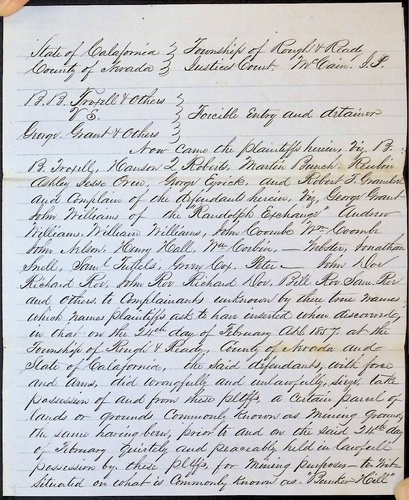 State of Calafornia } Township of Rough & Ready
County of Nevada } Justices Court. McCain. J.P.
B. B. Troxell & Others }
Vs. } Forcible Entry and detainer
George Grant & Others }
Now came the plaintiffs herein, Viz, B.
B. Troxell, Hanson L. Roberts, Martin Bunch, Reubin
Ashley Jesse Orew, George Eyrick, and Robert T. Gramblin
and Complain of the defendants herein, Viz, George Grant
John Williams of the "Randolph Exchange" Andrew
Williams, William Williams, John Coombe Wm. Coombe
John Nelson. Henry Hall, Wm Corbin, — Webster, Jonathan
Snell, Saml Tuttels, Owen Cox. Peter — John Doe
Richard Roe, John Roe Richard Doe, Bill Roe Sam. Roe
and others to Complainants unknown by there true names
which names plaintiffs ask to have inserted when discovered,
in that on the 24th day of February A.D. 1857. at the
Township of Rough & Ready, County of Nevada and
State of Calafornia, the said defendants, with force
and Arms, did wrongfully and unlawfully, seize, take
possession of and from these pltffs. a Certain parcel of
lands or grounds Commonly known as Mining Ground,
the same having been, prior to and on the said 24th day
of February quietly and peaceably held in lawfull
possession by these pltffs, for Mining purposes — to Wit
Situated on what is Commonly known as. "Bunker Hill"